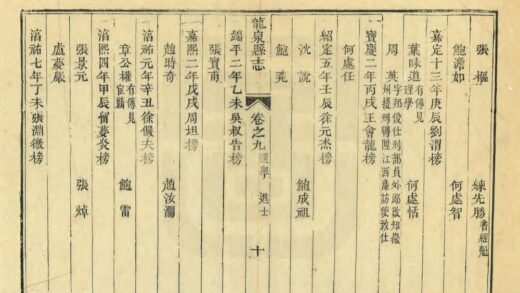 張樞　練先勝 書經魁
鮑澹如　何處智
嘉定十三年庚辰劉渭榜
葉味道 有傳見理學　何處恬
周 字郢俊仕刑部員外郎改知徽州提刑轉陞江西廉訪使致仕
寶慶二年丙戌王會龍榜
何處任
紹定五年壬辰徐元杰榜
沈說　鮑成祖
鮑堯
龍泉縣志　卷之九 選舉 進士　十
端平二年乙未吳叔告榜
張寶甫
嘉熙二年戊戌周坦榜
趙時奇　趙汝瀾
淳祐元年辛丑徐儼夫榜
章公權 有傳見宦篇　鮑雷
淳熙四年甲辰留夢炎榜
張景元　張焯
盧夢嚴
淳祐七年丁未張淵微榜